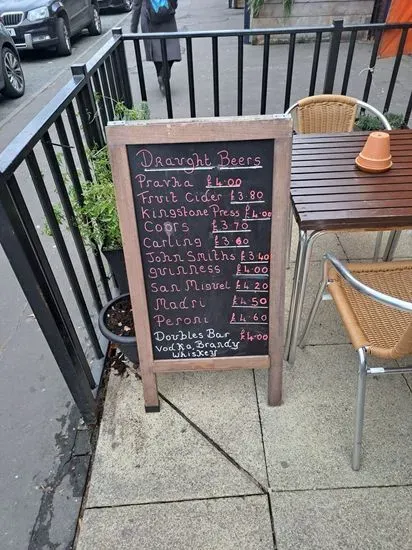 Draught Beers
Pravha £4.00
Fruit Cider £3.80
Kingstone Press £4.00
Coors £3.70
Carling £3.60
John Smiths £3.40
guinness £4.00
San Miguel £4.20
Madri £4.50
Peroni £4.60
Doubles Bar £4.00
Vodka, Brandy
Whiskey